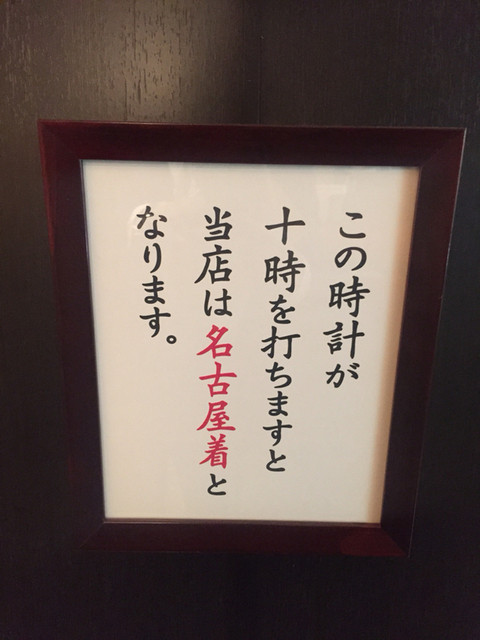 この時計が
十時を打ちますと
当店は名古屋着と
なります。